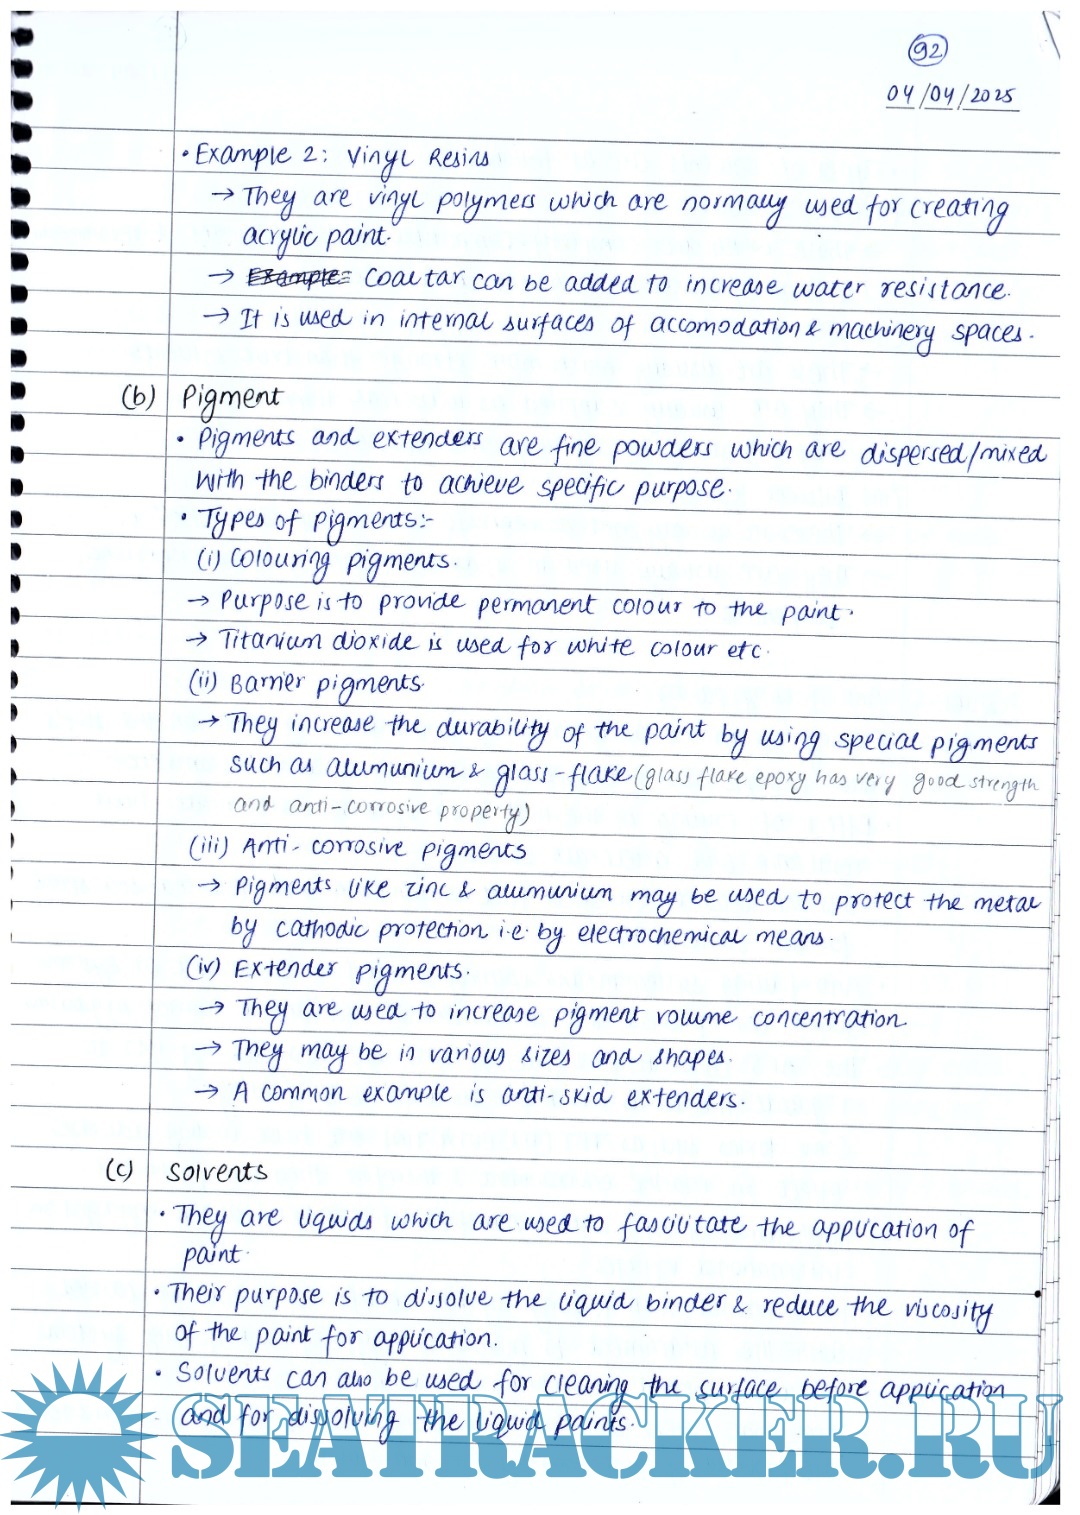 92
04/04/2025
• Example 2: Vinyl Resins
→ They are vinyl polymers which are normally used for creating
acrylic paint.
→ Example: Coal tar can be added to increase water resistance.
→ It is used in internal surfaces of accomodation & machinery spaces.
(b) Pigment
• Pigments and extenders are fine powders which are dispersed/mixed
with the binders to achieve specific purpose.
• Types of pigments:-
(i) Colouring pigments.
→ Purpose is to provide permanent colour to the paint.
→ Titanium dioxide is used for white colour etc.
(ii) Barrier pigments.
→ They increase the durability of the paint by using special pigments
such as alumunium & glass-flake (glass flake epoxy has very good strength
and anti-corrosive property)
(iii) Anti-corrosive pigments
→ Pigments like zinc & alumunium may be used to protect the metal
by cathodic protection i.e. by electrochemical means.
(iv) Extender pigments.
→ They are used to increase pigment volume concentration.
→ They may be in various sizes and shapes.
→ A common example is anti-skid extenders.
(c) Solvents
• They are liquids which are used to fascilitate the application of
paint.
• Their purpose is to dissolve the liquid binder & reduce the viscosity
of the paint for application.
• Solvents can also be used for cleaning the surface before application
and for dissolving the liquid paints.
SEATRACKER.RU